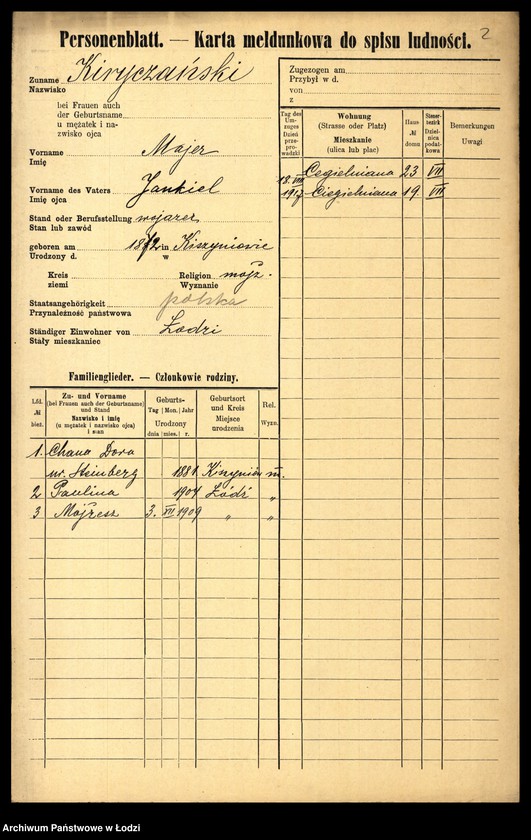 Personenblatt. — Karta meldunkowa do spisu ludności. 2
Zuname Kiryczański
Nazwisko
bei Frauen auch
der Geburtsname
u mężatek i na-
zwisko ojca
Vorname Majer
Imię
Vorname des Vaters Jankiel
Imię ojca
Stand oder Berufsstellung wojażer
Stan lub zawód
geboren am 1872 in Kiszyniowie
Urodzony d. w
Kreis Religion mojż.
ziemi Wyznanie
Staatsangehörigkeit polska
Przynależność państwowa
Ständiger Einwohner von Łodzi
Stały mieszkaniec
Zugezogen am
Przybył w d.
von
z
Tag des Um-zuges Dzień prze-prowadzki
Wohnung (Strasse oder Platz) Mieszkanie (ulica lub plac)
Haus № domu
Steuer-bezirk Dziel-nica podat-kowa
Bemerkungen Uwagi
Cegielniana 23 VII
18. VIII 1917 Cegielniana 19 VII
Familienglieder. — Członkowie rodziny.
Lfd. № bież.
Zu- und Vorname (bei Frauen auch der Geburtsname) und Stand Nazwisko i imię (u mężatek i nazwisko ojca) i stan
Geburts- Tag Mon. Jahr Urodzony dnia mies. r.
Geburtsort und Kreis Miejsce urodzenia
Rel. Wyzn.
1. Chana Dora
ur. Steinberg 1881 Kiszyniów m.
2 Paulina 1904 Łódź „
3 Mojżesz 3. VII 1909 „ „
Archiwum Państwowe w Łodzi